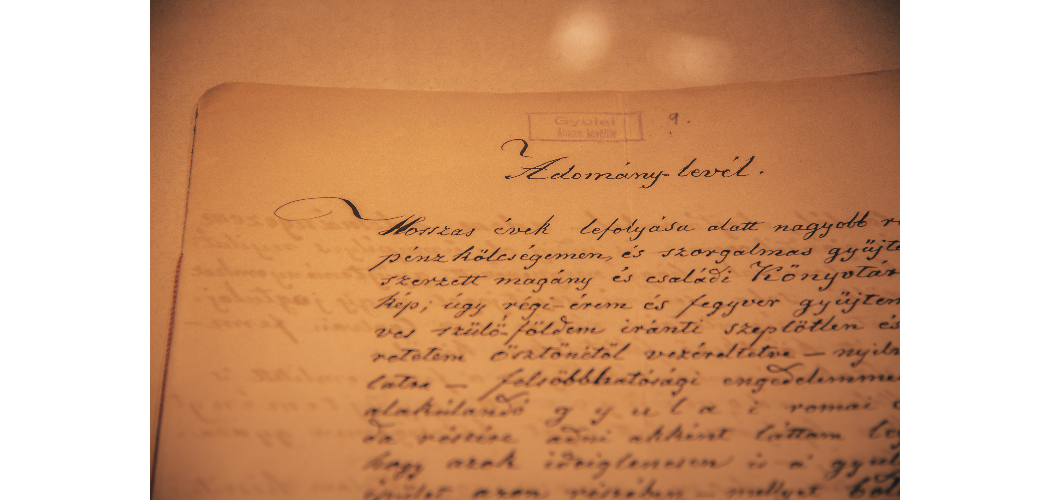 Gyulai
9.
Adomány-levél.
Hosszas évek lefolyása alatt nagyobb
pénz költségemen, és szorgalmas gyűjte
szerzett magány és családi Könyvtár
kép; úgy régi-érem és fegyver gyűjtem
ves szülő-földem iránti szeplőtlen és
retetem ösztönétől vezéreltetve – nyilv
látva – felsőbbhatósági engedelemme
alakúlandó gyulai romai
da részére adni akként láttam
hogy azok ideiglenesen is a' gyul
épület azon részében – mellyet